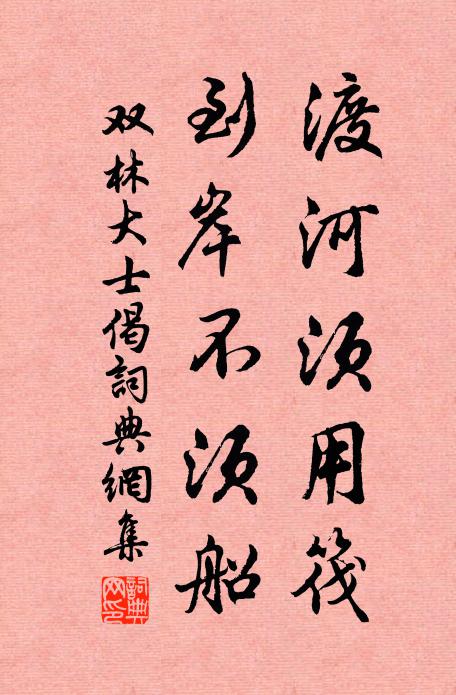 渡河须用筏
到岸不须船
双林大士偈詞典網集
詞典网印